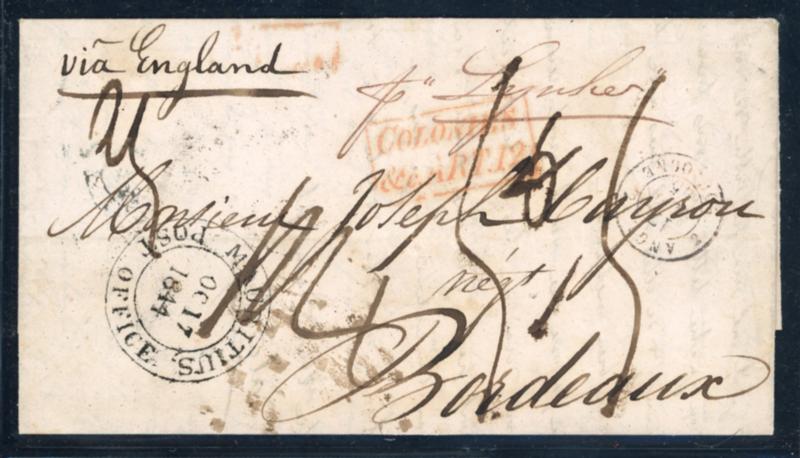 viā England
p "Lynher"
COLONIES
&c. ART. 12
Monsieur Joseph Mayrou
négt
Bordeaux
MAURITIUS POST OFFICE
OC 17
1844